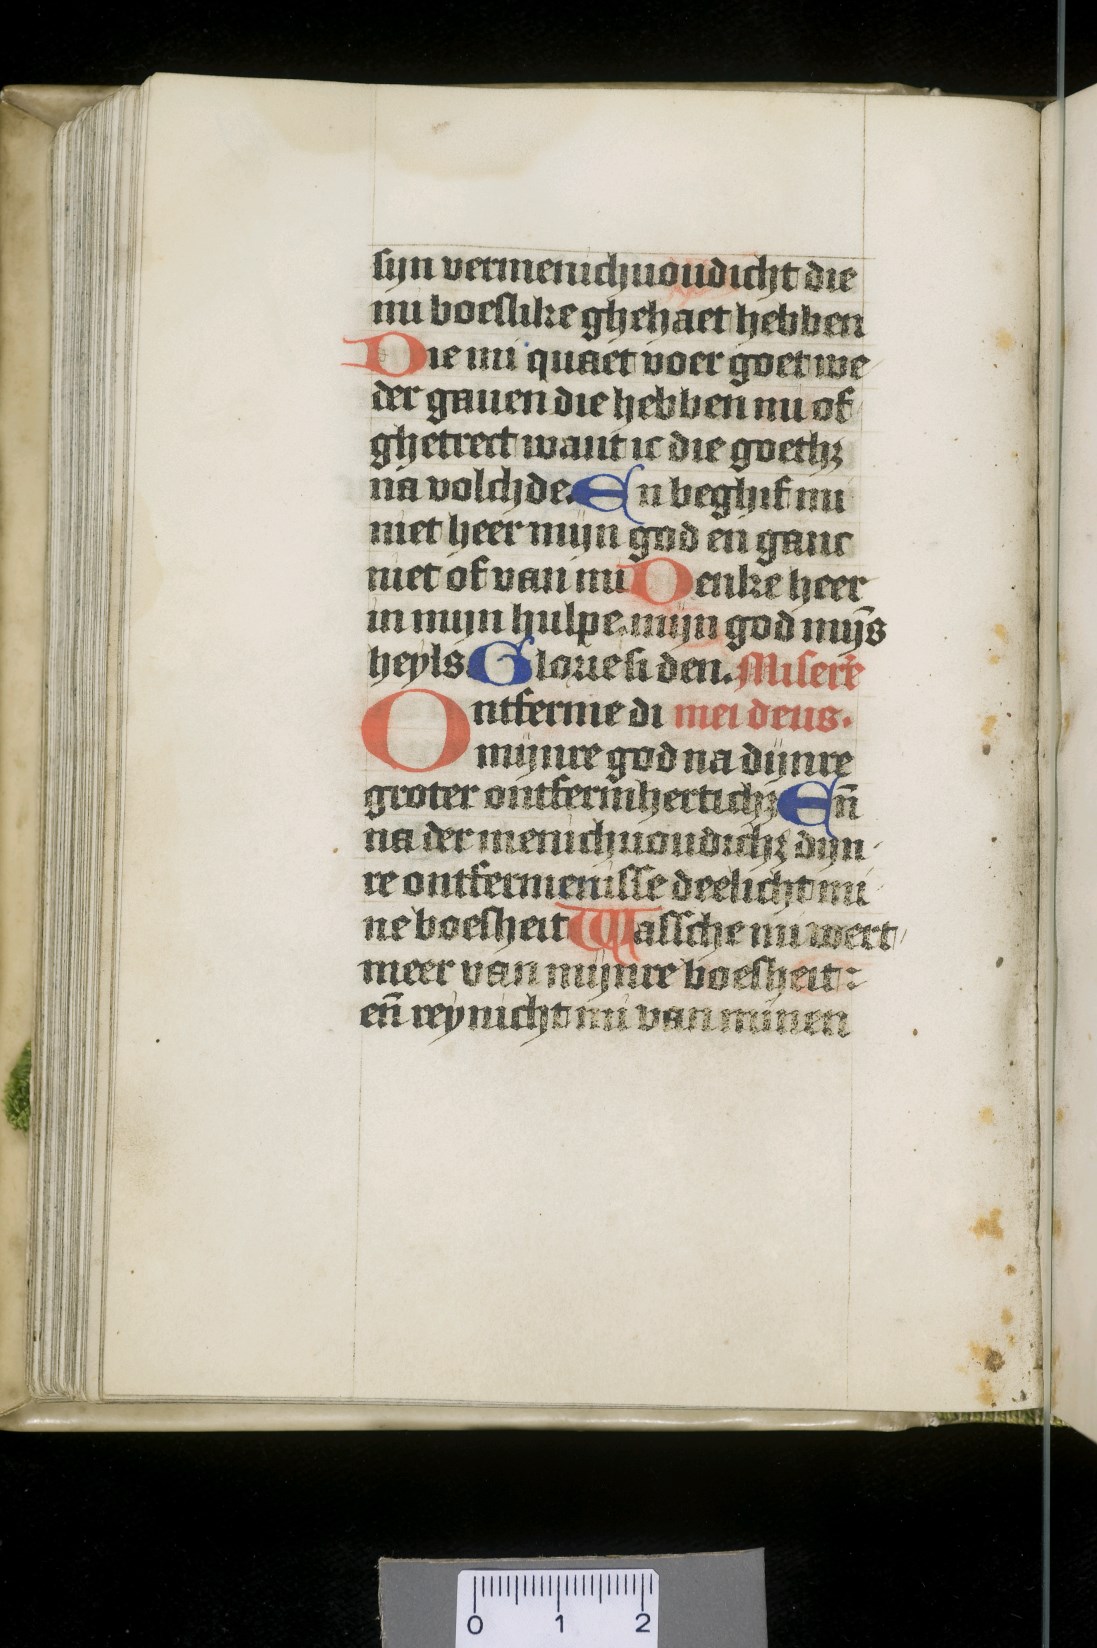 sijn vermenichuoudicht die
mi boeslike ghehaet hebben
Die mi quaet voer goet we
der gauen die hebben mi of
ghetrect want ic die goethꝫ
na volchde. En beghif mi
niet heer mijn god en̄ ganc
niet of van mi Denke heer
in mijn hulpe. mijn god mijs̄
heyls Glorie si den. Misere͞
Ontferme di mei deus.
mijnre god na dijnre
groter ontfermhertichꝫ En̄
na der menichuoudichꝫ dijn
re ontfermenisse deelicht mi
ne boesheit Wassche mi wert
meer van mijnre boesheit:
en̄ reynicht mi van minen
0 1 2